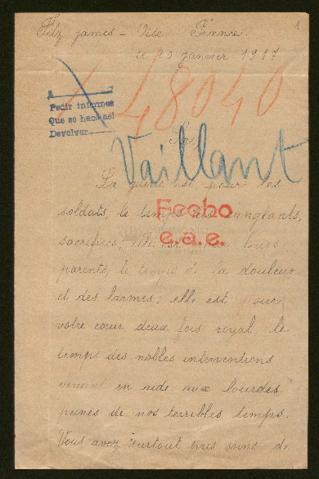 Fitz james - Oise France.
le 25 janvier 1917
48040
Pedir informes
Que se hace así
Devolver
Vaillant
La guerre est pour les
soldats, le temps des
Fecho
sacrifices; elle est pour leurs
e.a.e.
parents, le temps de la douleur
et des larmes; elle est pour
votre cœur deux fois royal le
temps des nobles interventions
venant en aide aux lourdes
peines de nos terribles temps.
Vous avez surtout pris soins de